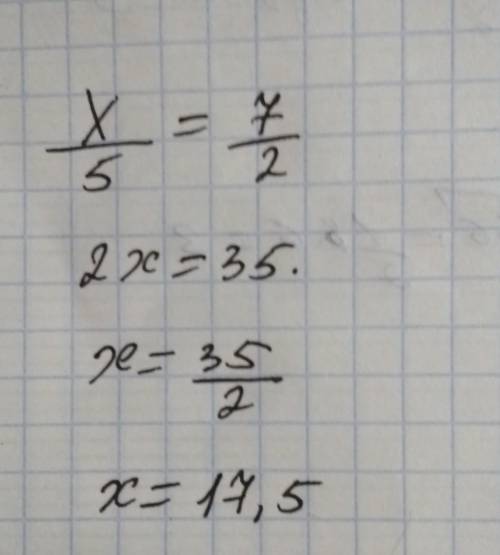 X/5 = 7/2
2x = 35.
x = 35/2
x = 17,5